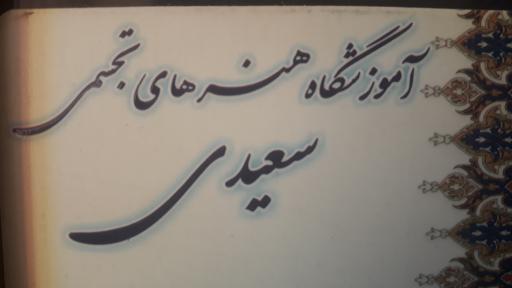 آموزشگاه هنرهای تجسمی
سعیدی